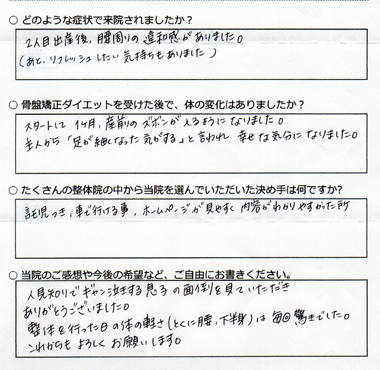 ○ どのような症状で来院されましたか？
2人目出産後、腰周りの違和感がありました。
(あと、リフレッシュしたい気持ちもありました)
○ 骨盤矯正ダイエットを受けた後で、体の変化はありましたか？
スタートして1ヶ月、産前のズボンが入るようになりました。
主人から「足が細くなった気がする」と言われ 幸せな気分になりました。
○ たくさんの整体院の中から当院を選んでいただいた決め手は何ですか？
託児つき、車で行ける事、ホームページが見やすく内容がわかりやすかった所
○ 当院のご感想や今後の希望など、ご自由にお書きください。
人見知りでギャン泣きする息子の面倒を見ていただき
ありがとうございました。
整体を行った日の体の軽さ(とくに腰、下半身)は毎回驚きでした。
これからもよろしくお願いします。